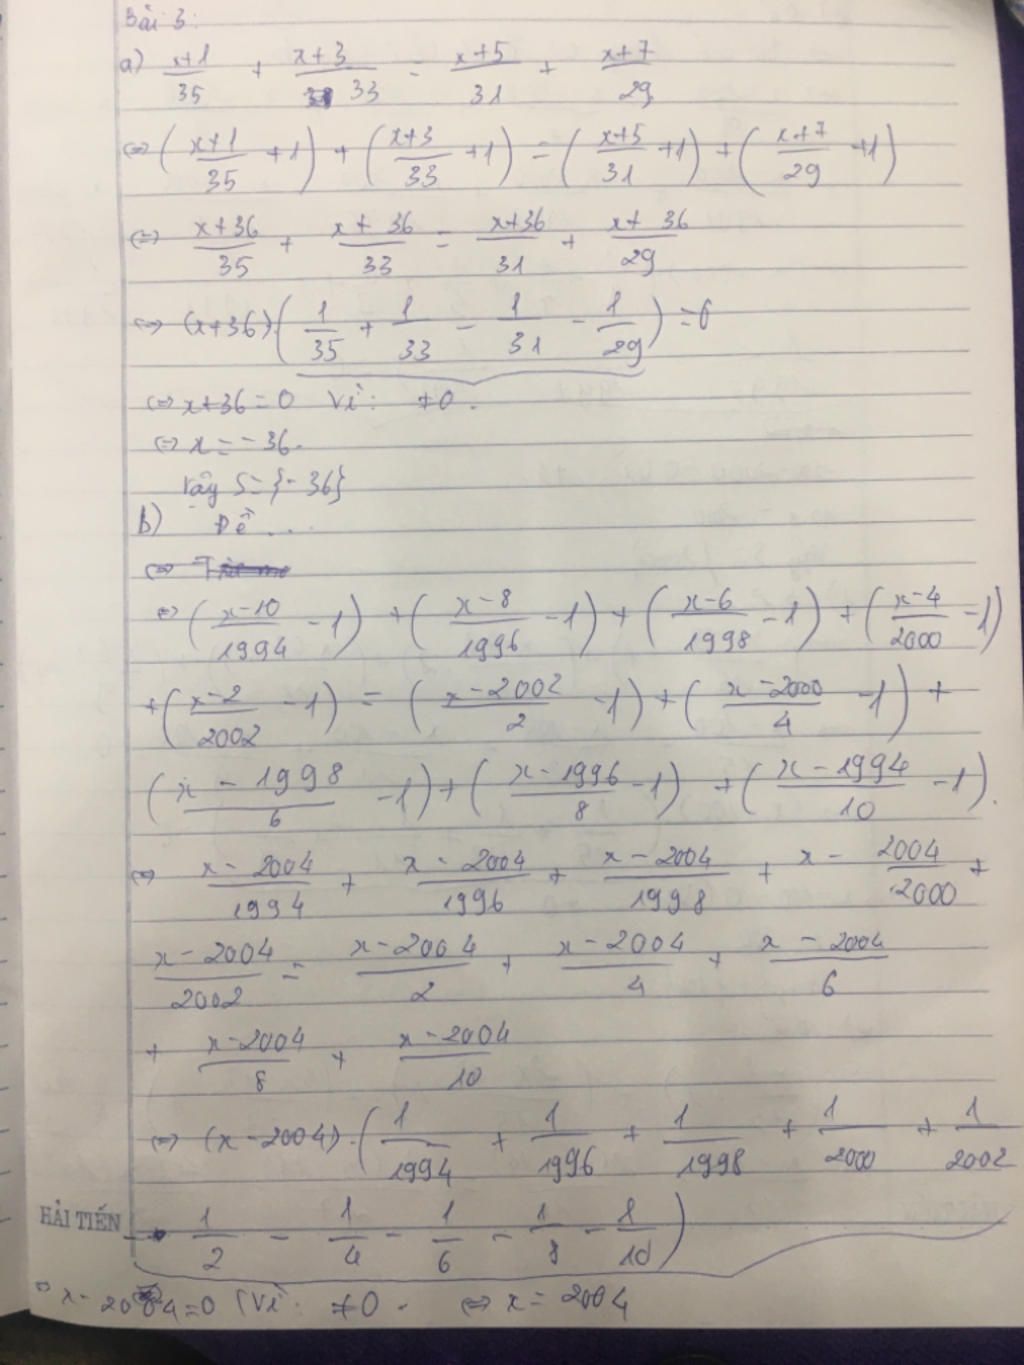 Bài 3:
a) x+1/35 + x+3/33 = x+5/31 + x+7/29
⇔ (x+1/35 +1) + (x+3/33 +1) = (x+5/31 +1) + (x+7/29 +1)
⇔ x+36/35 + x+36/33 = x+36/31 + x+36/29
⇔ (x+36).(1/35 + 1/33 - 1/31 - 1/29) = 0
⇔ x+36=0 Vì: ≠0.
⇔ x = -36.
Vậy S={-36}
b) Đề...
⇔
⇔ (x-10/1994 -1) + (x-8/1996 -1) + (x-6/1998 -1) + (x-4/2000 -1)
+ (x-2/2002 -1) = (x-2002/2 -1) + (x-2000/4 -1) +
(x-1998/6 -1) + (x-1996/8 -1) + (x-1994/10 -1).
⇔ x-2004/1994 + x-2004/1996 + x-2004/1998 + x-2004/2000 +
x-2004/2002 = x-2004/2 + x-2004/4 + x-2004/6
+ x-2004/8 + x-2004/10
⇔ (x-2004).(1/1994 + 1/1996 + 1/1998 + 1/2000 + 1/2002
HẢI TIẾN - 1/2 - 1/4 - 1/6 - 1/8 - 1/10)
⇔ x-2004=0 (Vì: ≠0. ⇔ x = 2004